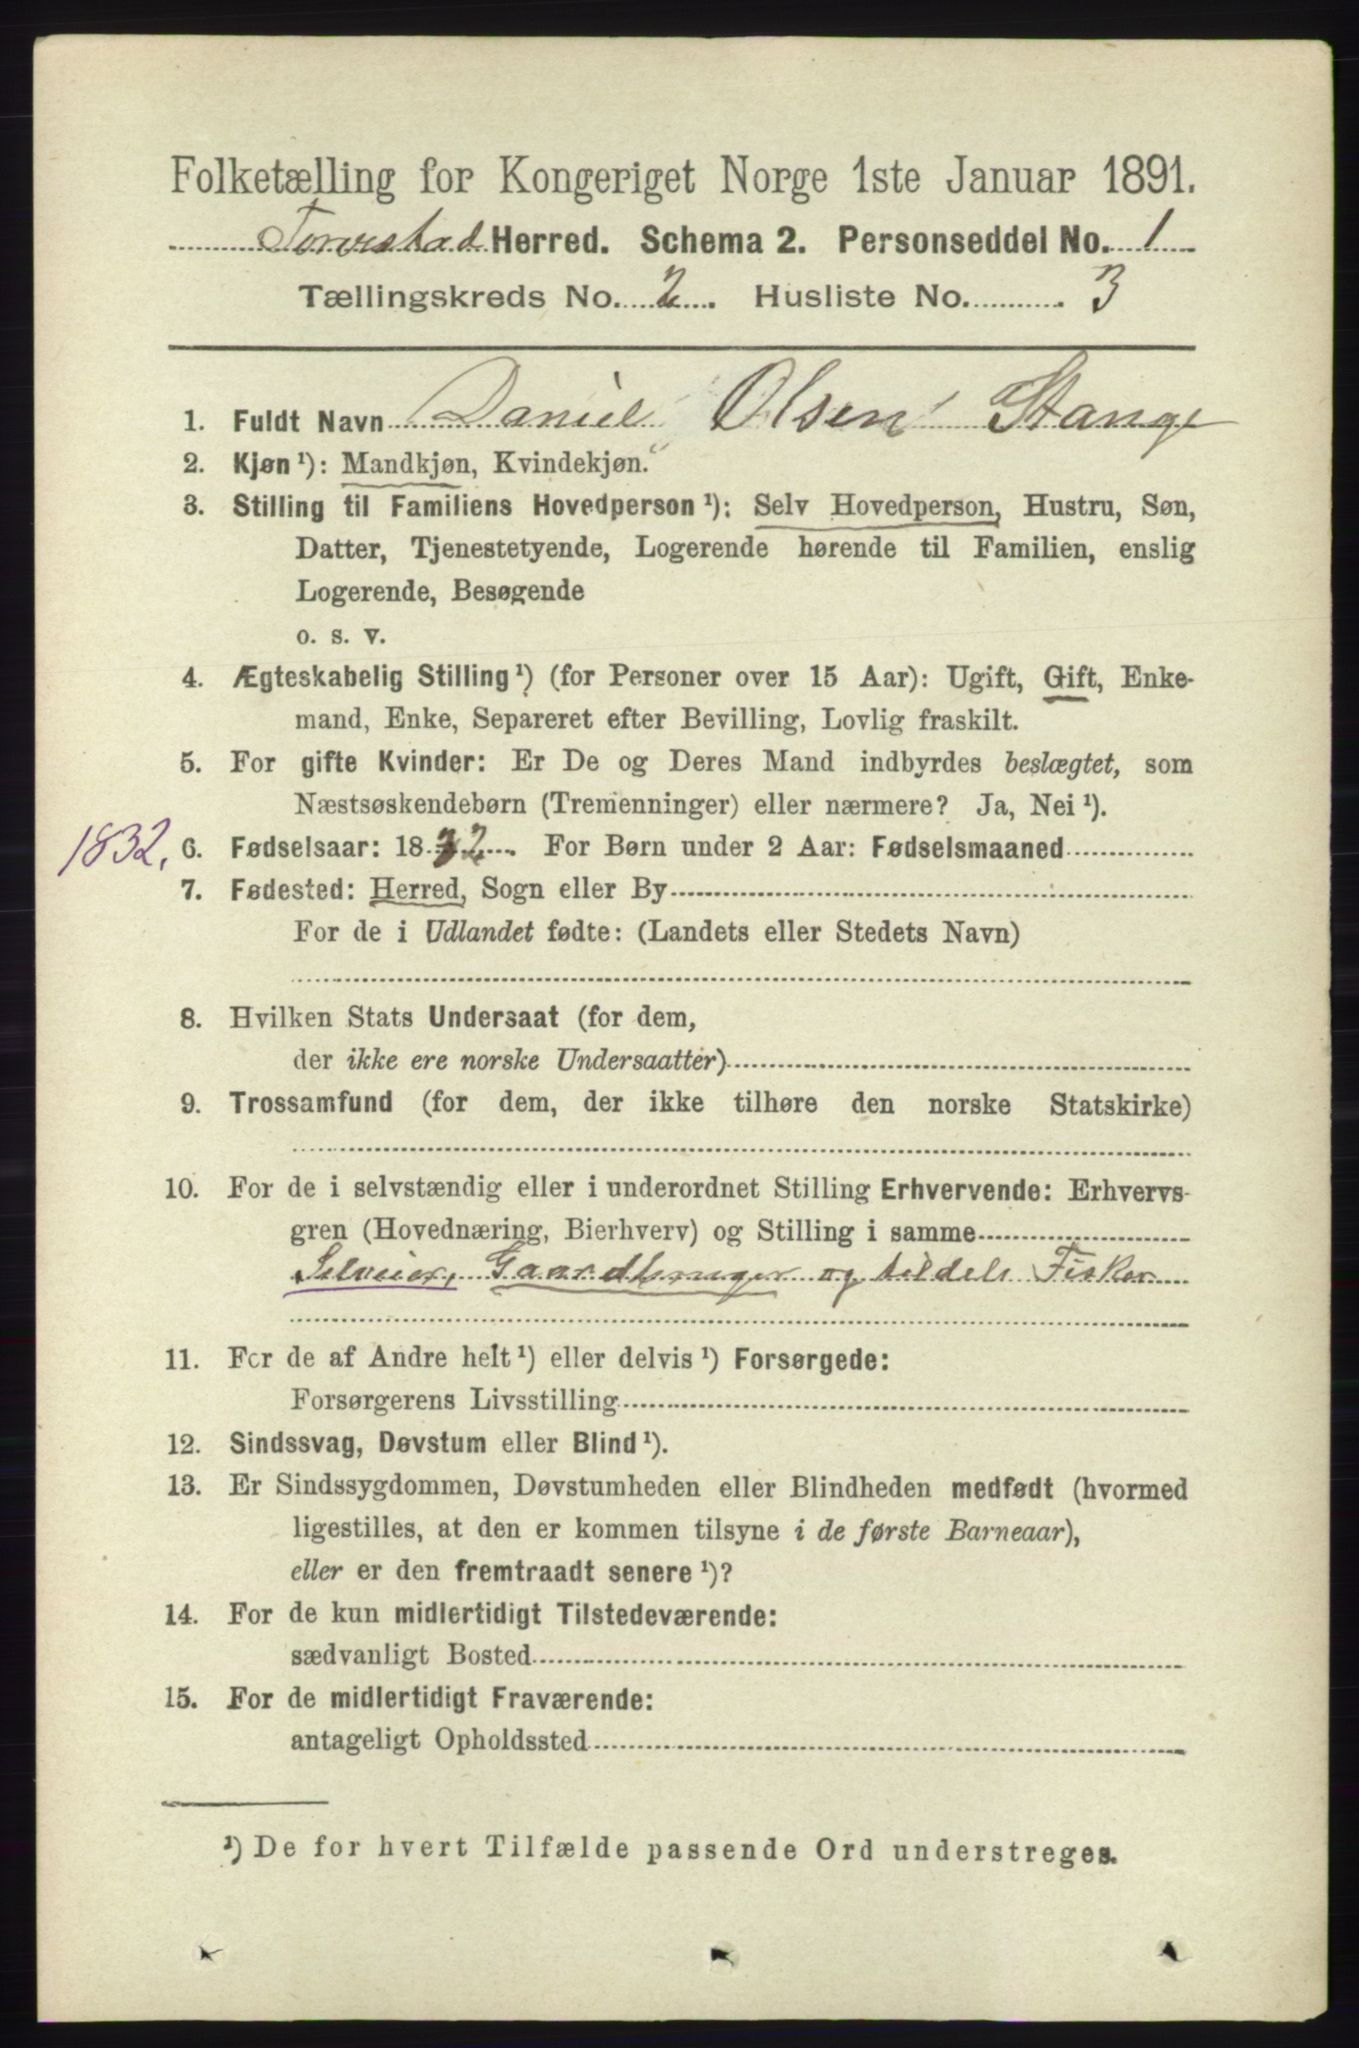 Folketælling for Kongeriget Norge 1ste Januar 1891.
Torvestad Herred. Schema 2. Personseddel No. 1
Tællingskreds No. 2. Husliste No. 3
1. Fuldt Navn Daniel Olsen Stange
2. Kjøn ¹): Mandkjøn, Kvindekjøn.
3. Stilling til Familiens Hovedperson ¹): Selv Hovedperson, Hustru, Søn,
Datter, Tjenestetyende, Logerende hørende til Familien, enslig
Logerende, Besøgende
o. s. v.
4. Ægteskabelig Stilling ¹) (for Personer over 15 Aar): Ugift, Gift, Enke-
mand, Enke, Separeret efter Bevilling, Lovlig fraskilt.
5. For gifte Kvinder: Er De og Deres Mand indbyrdes beslægtet, som
Næstsøskendebørn (Tremenninger) eller nærmere? Ja, Nei ¹).
1832. 6. Fødselsaar: 1832. For Børn under 2 Aar: Fødselsmaaned
7. Fødested: Herred, Sogn eller By
For de i Udlandet fødte: (Landets eller Stedets Navn)
8. Hvilken Stats Undersaat (for dem,
der ikke ere norske Undersaatter)
9. Trossamfund (for dem, der ikke tilhøre den norske Statskirke)
10. For de i selvstændig eller i underordnet Stilling Erhvervende: Erhvervs-
gren (Hovednæring, Bierhverv) og Stilling i samme
Selveier, Gaardbruger og tildels Fisker
11. For de af Andre helt ¹) eller delvis ¹) Forsørgede:
Forsørgerens Livsstilling
12. Sindssvag, Døvstum eller Blind ¹).
13. Er Sindssygdommen, Døvstumheden eller Blindheden medfødt (hvormed
ligestilles, at den er kommen tilsyne i de første Barneaar),
eller er den fremtraadt senere ¹)?
14. For de kun midlertidigt Tilstedeværende:
sædvanligt Bosted
15. For de midlertidigt Fraværende:
antageligt Opholdssted
¹) De for hvert Tilfælde passende Ord understreges.